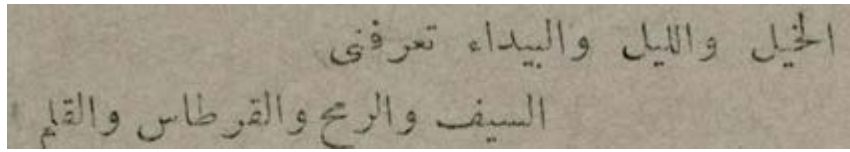 الخيل والليل والبيداء تعرفنى
السيف والرمح والقرطاس والقلم